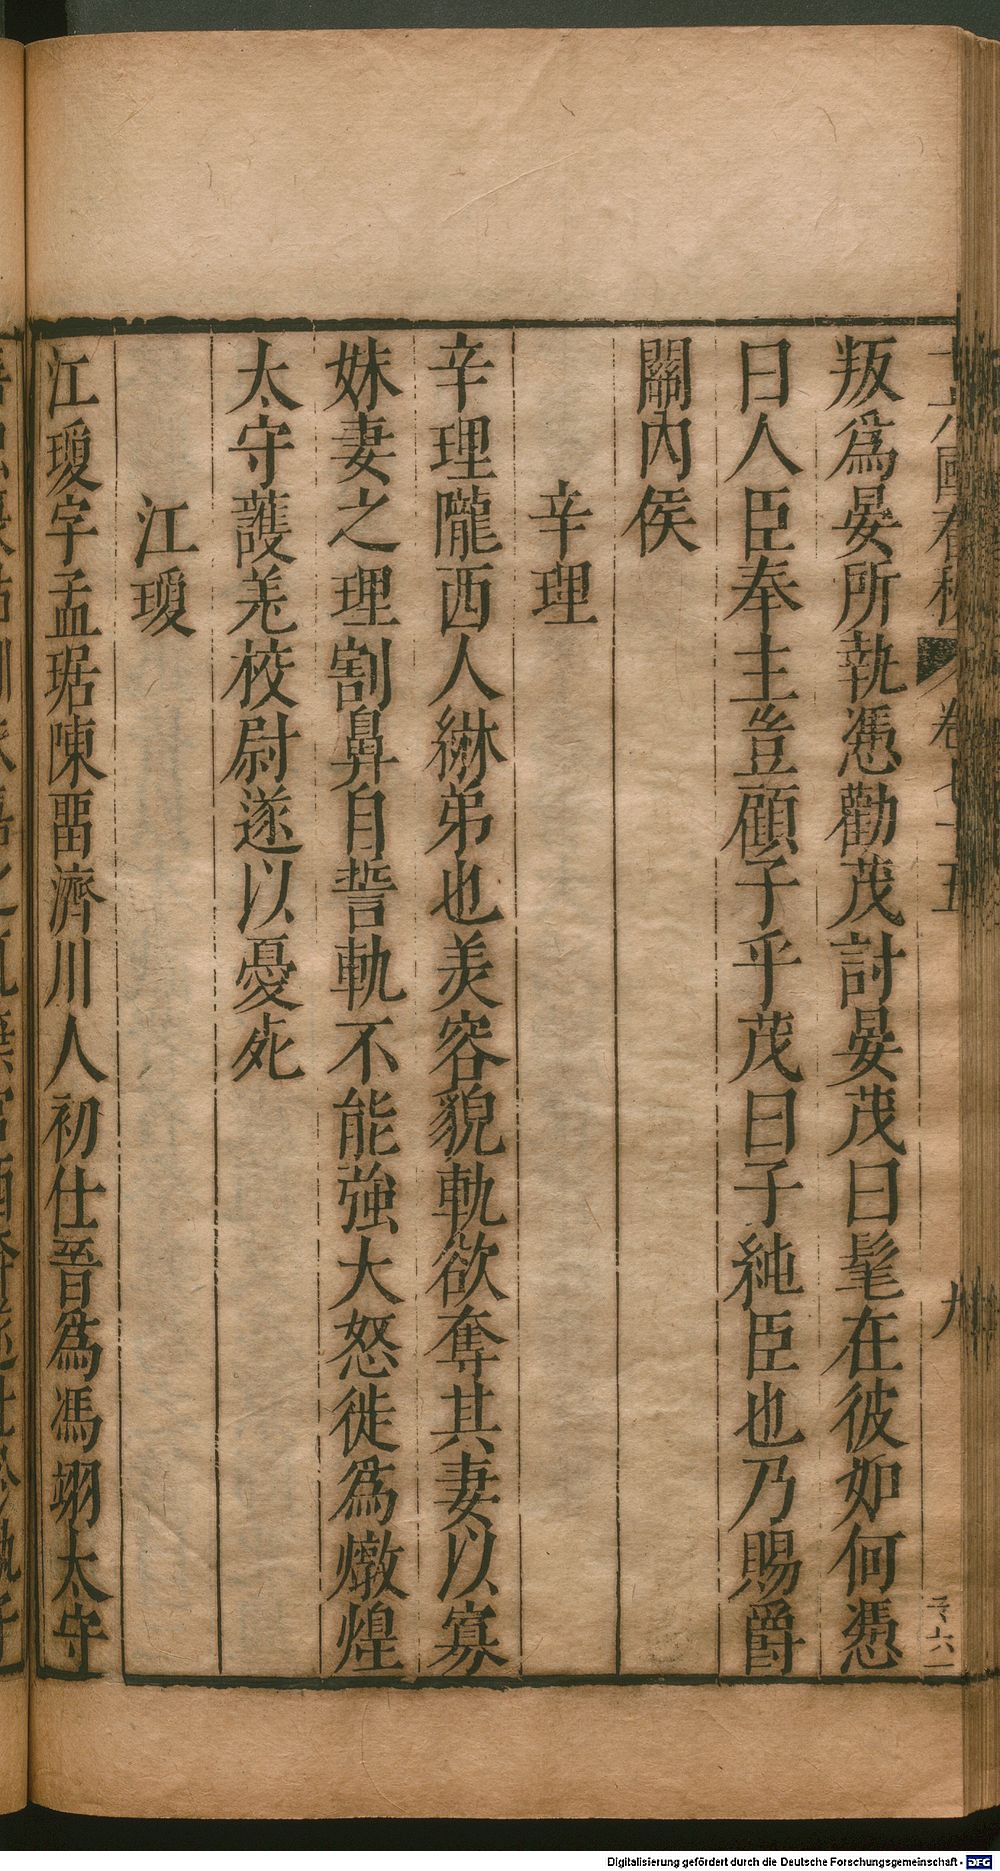 十六國春秋 卷七十五 九
叛爲晏所執憑勸茂討晏茂曰髦在彼如何憑
曰人臣奉主豈顧子乎茂曰子純臣也乃賜爵
關內侯
辛理
辛理隴西人綝弟也美容貌軌欲奪其妻以寡
妹妻之理割鼻自誓軌不能強大怒徙爲燉煌
太守護羌校尉遂以憂死
江瓊
江瓊字孟琚陳畱濟川人初仕晉爲馮翊太守
Digitalisierung gefördert durch die Deutsche Forschungsgemeinschaft - DFG